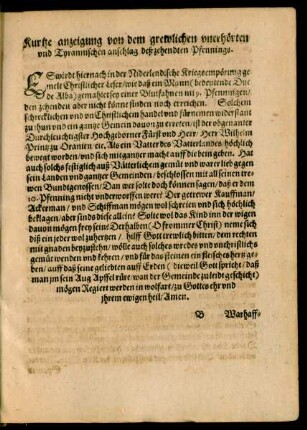 Kurtze anzeigung von dem grewlichen vnerhörten
vnd Tyrannischen anschlag deß zehendten Pfennings.
ES wirdt hiernach in der Niderlendische Kriegsempörung ge
melt Christlicher Leser/ wie daß ein Müntz bedeutende Duc
de Alba/ gemacht sey einer Blutfahnen mit 9. Pfenningen/
den zehenden aber nicht könne finden noch erreichen. Solchem
schrecklichen vnd vn Christlichen handel/ vnd fürnemen widerstant
zu thun vnd ein gantze Gemein dauon zu erretten/ ist der obgemante
Durchleuchtigster Hochgeborner Fürst vnd Herr/ Herr Wilhelm
Printz zu Oranien etc. Als ein Vatter des Vatterlandes höchlich
bewegt worden/ vnd sich mit gantzer macht auff die bein geben. Hat
auch solches festiglich auß Vätterlichem gemüt vnd warer lieb gegen
sein Landen vnd gantzer Gemeinden/ beschlossen mit all seinen trewen
Bundtgenossen. Dan wer solte doch können sagen/ daß er dem
10. Pfenning nicht vnderworffen were? Der getrewer Kauffman/
Ackerman/ vnd Schiffman mögen wol schreien vnd sich höchlich
beklagen/ aber sinds diese allein? Solte wol das Kind inn der wigen
dauon mögen frey sein? Derhalben (O frommer Christ) neme sich
diß ein jeder wol zu hertzen/ hilff Gott trewlich bitten/ dem rechten
mit gnaden beyzustehn/ wölle auch solches wredes vnd vnchristlichs
gemüt wenden vnd kehren/ vnd für das steinen ein fleisches hertz geben/
auff daß seine geliebten auff Erden (dieweil Gott spricht/ daß
man jm sein Aug Apffel rüre/ wan der Gemeinde zu leydt geschicht)
mögen Regiert werden in wolfart/ zu Gottes ehr vnd
jhrem ewigen heil/ Amen.
B Warhaff-